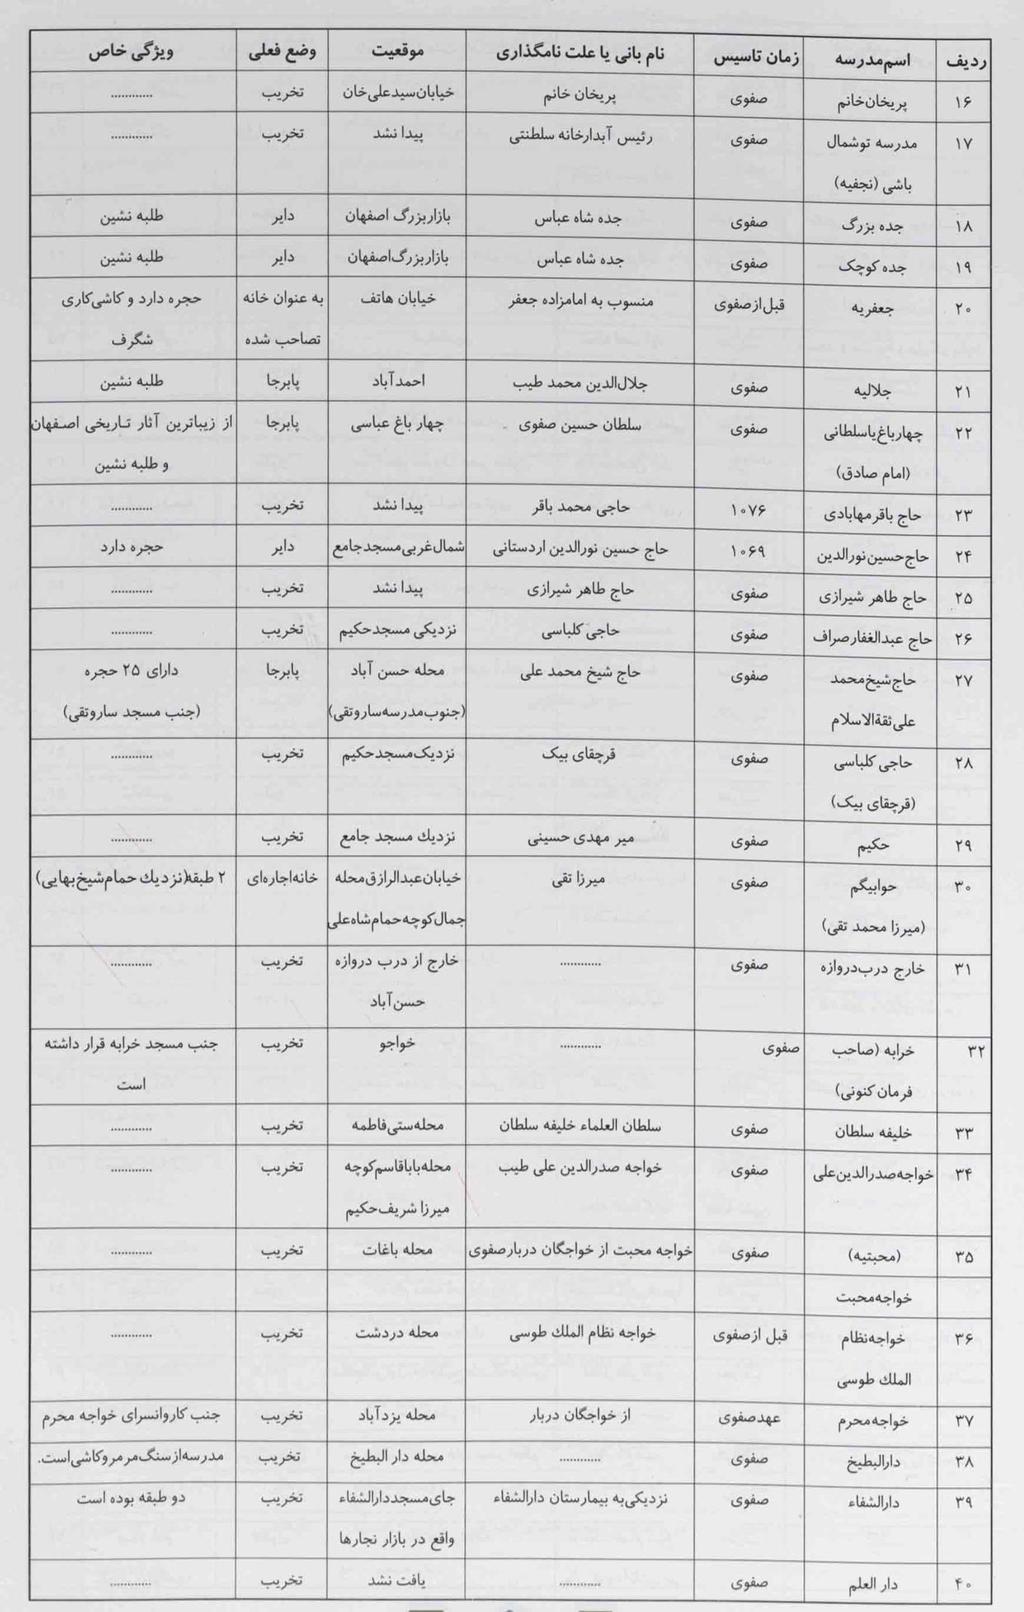 ردیف اسم مدرسه زمان تاسیس نام بانی یا علت نامگذاری موقعیت وضع فعلی ویژگی خاص
۱۶ پریخان خانم صفوی پریخان خانم خیابان سیدعلی خان تخریب ............
۱۷ مدرسه توشمال صفوی رئیس آبدارخانه سلطنتی پیدا نشد تخریب ............
باشی (نجفیه)
۱۸ جده بزرگ صفوی جده شاه عباس بازار بزرگ اصفهان دایر طلبه نشین
۱۹ جده کوچک صفوی جده شاه عباس بازار بزرگ اصفهان دایر طلبه نشین
۲۰ جعفریه قبل از صفوی منسوب به امامزاده جعفر خیابان هاتف به عنوان خانه حجره دارد و کاشی کاری
تصاحب شده شگرف
۲۱ جلالیه صفوی جلال الدین محمد طیب احمدآباد پابرجا طلبه نشین
۲۲ چهارباغ یا سلطانی صفوی سلطان حسین صفوی چهار باغ عباسی پابرجا از زیباترین آثار تاریخی اصفهان
(امام صادق) و طلبه نشین
۲۳ حاج باقر مهابادی ۱۰۷۶ حاجی محمد باقر پیدا نشد تخریب ............
۲۴ حاج حسین نورالدین ۱۰۶۹ حاج حسین نورالدین اردستانی شمال غربی مسجد جامع دایر حجره دارد
۲۵ حاج طاهر شیرازی صفوی حاج طاهر شیرازی پیدا نشد تخریب ............
۲۶ حاج عبدالغفار صراف صفوی حاجی کلباسی نزدیکی مسجد حکیم تخریب ............
۲۷ حاج شیخ محمد صفوی حاج شیخ محمد علی محله حسن آباد پابرجا دارای ۲۵ حجره
علی ثقة الاسلام (جنوب مدرسه ساروتقی) (جنب مسجد ساروتقی)
۲۸ حاجی کلباسی صفوی قرچقای بیک نزدیک مسجد حکیم تخریب ............
(قرچقای بیک)
۲۹ حکیم صفوی میر مهدی حسینی نزدیك مسجد جامع تخریب ............
۳۰ حوابیگم صفوی میرزا تقی خیابان عبدالرازق محله خانه اجاره‌ای ۲ طبقه (نزدیك حمام شیخ بهایی)
(میرزا محمد تقی) جمال کوچه حمام شاه علی
۳۱ خارج درب دروازه صفوی ............ خارج از درب دروازه تخریب ............
حسن آباد
۳۲ خرابه (صاحب صفوی ............ خواجو تخریب جنب مسجد خرابه قرار داشته
فرمان کنونی) است
۳۳ خلیفه سلطان صفوی سلطان العلماء خلیفه سلطان محله ستی فاطمه تخریب ............
۳۴ خواجه صدرالدین علی صفوی خواجه صدرالدین علی طیب محله باباقاسم کوچه تخریب ............
میرزا شریف حکیم
۳۵ (محبتیه) صفوی خواجه محبت از خواجگان دربار صفوی محله باغات تخریب ............
خواجه محبت
۳۶ خواجه نظام قبل از صفوی خواجه نظام الملك طوسی محله دردشت تخریب ............
الملك طوسی
۳۷ خواجه محرم عهد صفوی از خواجگان دربار محله یزدآباد تخریب جنب کاروانسرای خواجه محرم
۳۸ دارالبطیخ صفوی ............ محله دار البطیخ تخریب مدرسه از سنگ مرمر و کاشی است.
۳۹ دارالشفاء صفوی نزدیکی به بیمارستان دارالشفاء جای مسجد دارالشفاء تخریب دو طبقه بوده است
واقع در بازار نجارها
۴۰ دار العلم صفوی ............ یافت نشد تخریب ............